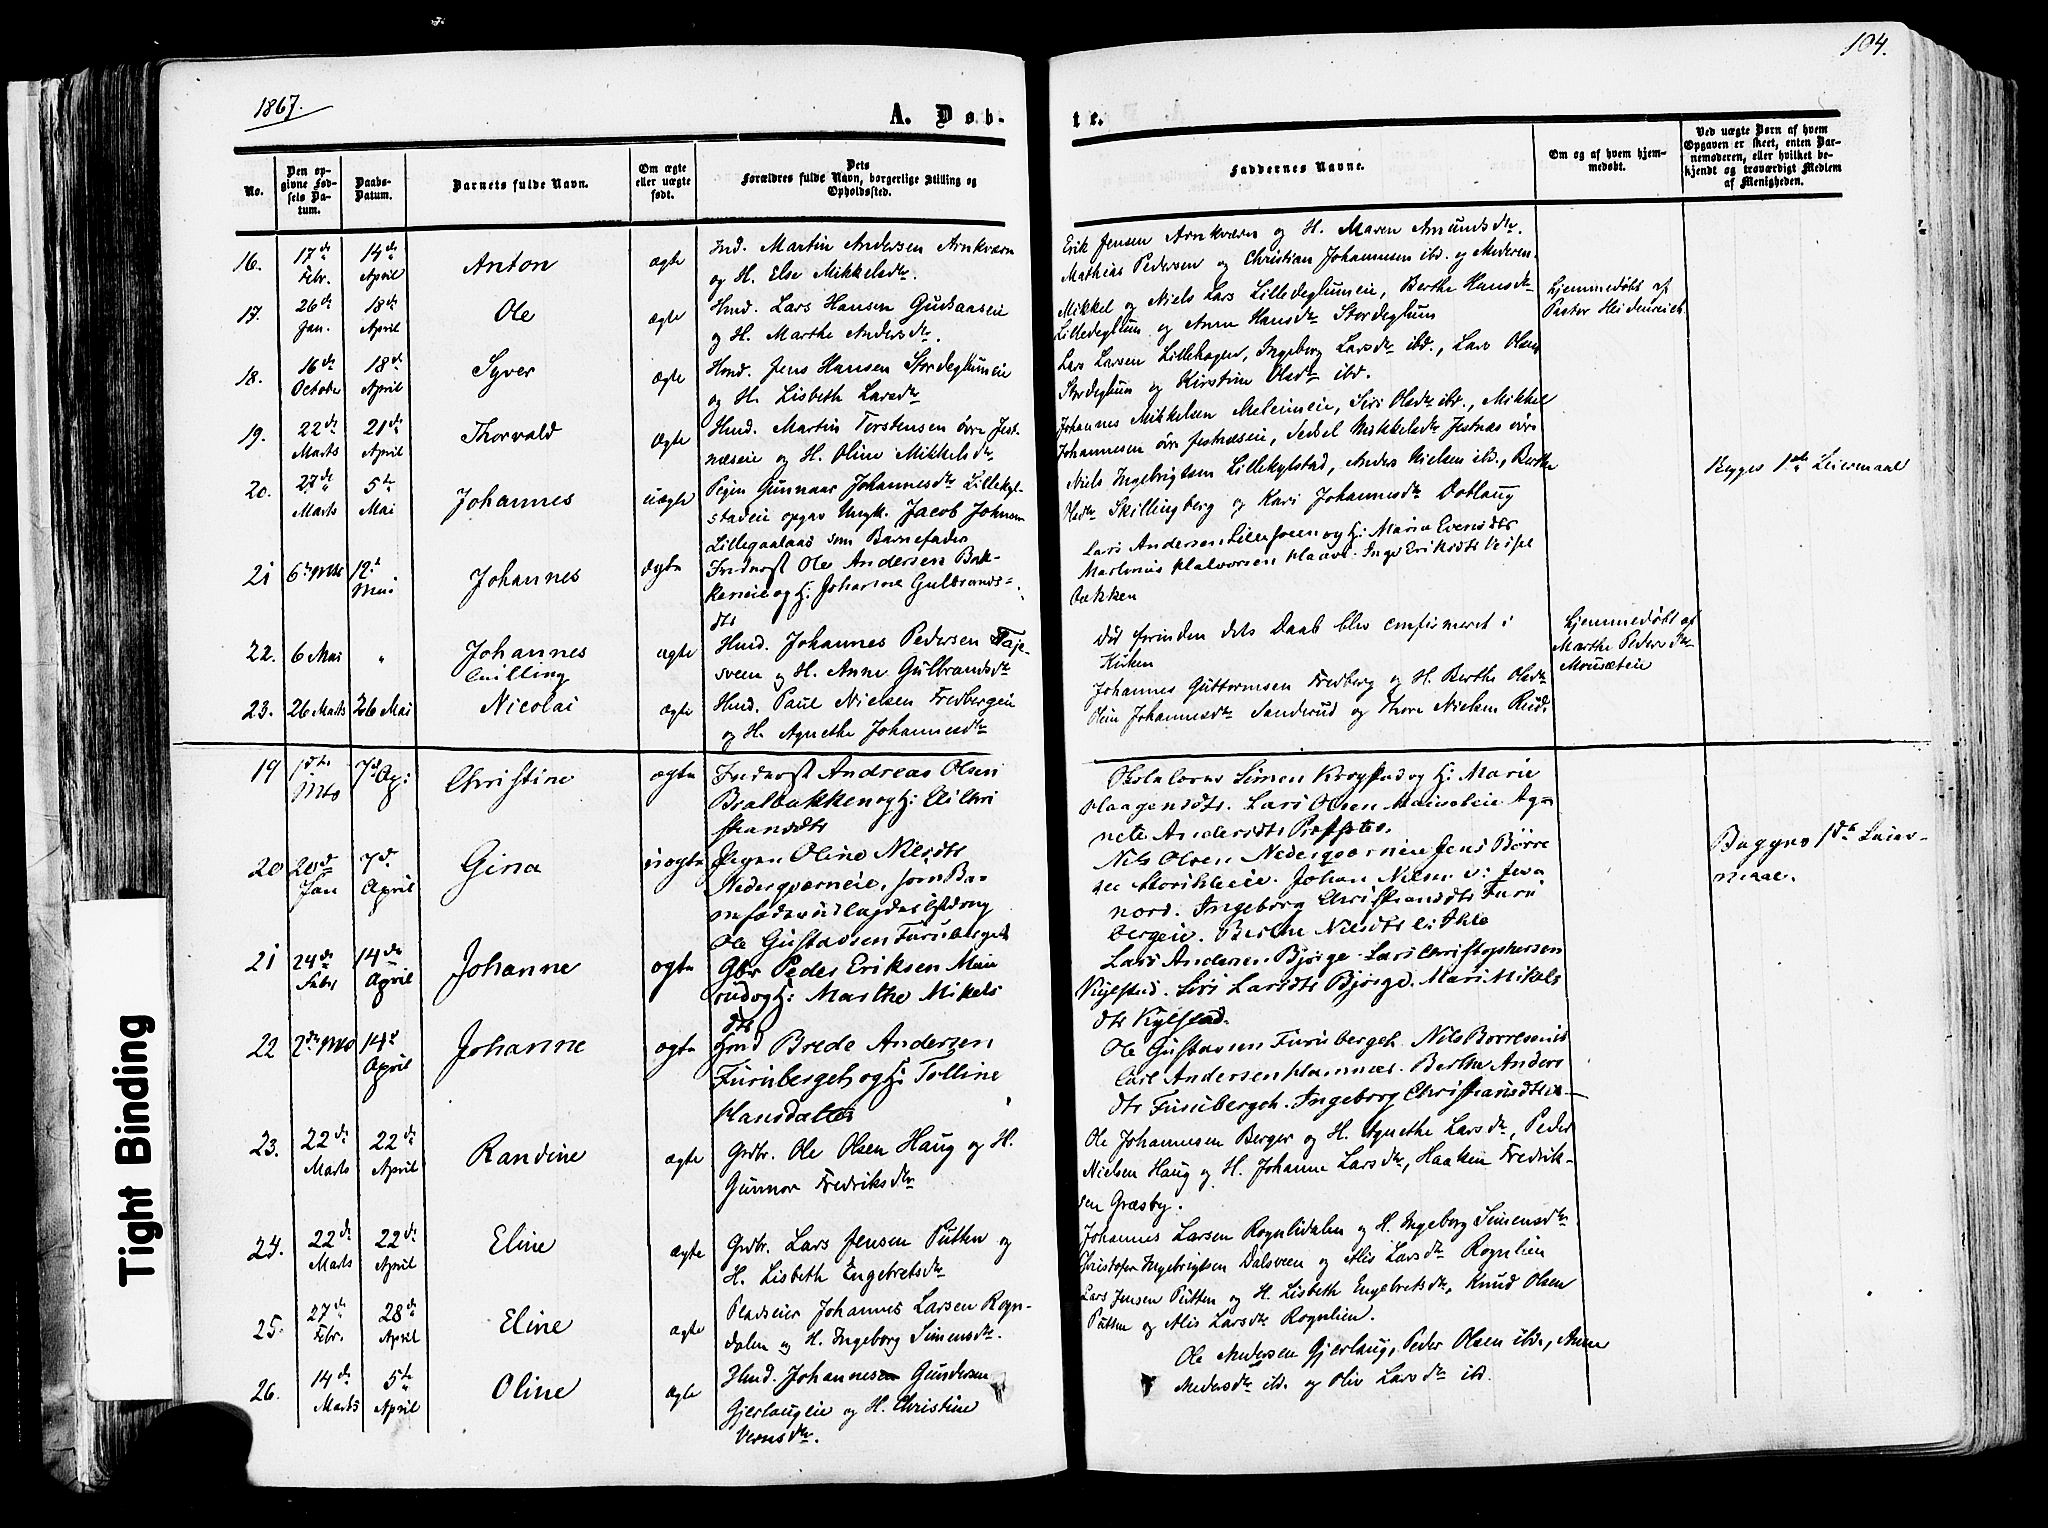 104.
1867.
A. Døb-
te.
No.
Den op-
givne Fød-
sels Da-
tum.
Daabs-
Datum.
Barnets fulde Navn.
Om ægte
eller uægte
født.
Dets
Forældres fulde Navn, borgerlige Stilling og
Opholdssted.
Faddernes Navne.
Om og af hvem hjem-
medøbt.
Ved uægte Børn af hvem
Opgaven er skeet, enten Bar-
nemoderen, eller hvilket be-
kjendt og troværdigt Medlem
af Menigheden.
16. 17de Febr. 14de April Anton ægte
Ind. Martin Andersen Arnkværn
og H. Else Mikkelsdtr.
Erik Jensen Arnkværn og H. Maren Amundsdtr.
Mathias Pedersen og Christian Johannesen ibd. og Moderen.
17. 26de Jan. 18de April Ole ægte
Hmd. Lars Hansen Gudsaaseie
og H. Marthe Andersdtr.
Mikkel og Niels Lars Lilledeglumeie, Berthe Hansdtr
Lilledeglum og Anne Hansdtr Stordeglum
Hjemmedøbt af
Pastor Heidenreich
18. 16de October 18de April Syver ægte
Hmd. Jens Hansen Stordeglumeie
og H. Lisbeth Larsdtr
Lars Larsen Lillehagen, Ingeborg Larsdtr ibd., Lars Olsen
Stordeglum og Kirstine Olsdtr ibd.
19. 22de Marts 21de April Thorvald ægte
Hmd. Martin Torstensen øvre Jest-
næseie og H. Oline Mikkelsdtr
Johannes Mikkelsen Meleimeie, Siri Olsdtr ibd., Mikkel
Johannesen øvre Jestnæseie, Sedsel Mikkelsdtr Jestnæs øvre
20. 27de Marts 5te Mai Johannes uægte
Pigen Gunnaar Johannesdtr Lillekyl-
stadeie opgav Ungk. Jacob Johnsen
Lillegaalaas som Barnefader
Niels Ingebrigtsen Lillekylstad, Anders Nielsen ibd., Berthe
Olsdtr Skillingberg og Kari Johannesdtr Doblaug
Begges 1ste Leiermaal
21 6te Mts 12te Mai Johannes ægte
Inderst Ole Andersen Bak-
keneie og H: Johanne Gulbrands-
dtr
Lars Andersen Lillesveen og H: Maria Evensdtr
Martinus Halvorsen Haave. Inge Eriksdtr Veisel
bakken
22. 6 Mai " Johannes
Tvilling
ægte
Hmd. Johannes Pedersen Taje-
sveen og H. Anne Gulbrandsdtr
Død forinden dets Daab blev confirmeret i
Kirken
Hjemmedøbt af
Marthe Pedersdtr
Mousæteie
23. 26 Marts 26 Mai Nicolai ægte
Hmd. Paul Nielsen Fredbergeie
og H. Agnethe Johannesdtr
Johannes Guttormsen Fredberg og H. Berthe Olsdtr
Oline Johannesdtr Sanderud og Thore Nielsen Rud.
19 1ste Mts 7de Ap: Christine ægte
Inderst Andreas Olsen
Bralbakken og H: Eli Chri
stiansdtr
Skolelærer Simen Krogstad og H: Marie
Haagensdtr. Lars Olsen Maiseteie Ag-
nete Andersdtr Præstsæter.
20 20de Jan 7de April Gina uægte
Pigen Oline Nilsdtr
Nederqværneie, som Bar-
nefader udlagdes Ystdreng
Ole Gustavsen Furubergeh
Nils Olsen Nederqværneie Jens Børre
sen Storihleeie. Johan Nilsen
nord. Ingeborg Christiansdtr Furu
bergeie. Berthe Nilsdtr l: Ihle
Begges 1ste Leier-
maal.
21 24de Febr 14de April Johanne ægte
Gbr Peder Eriksen Meie
rud og H: Marthe Mikels
dtr
Lars Andersen Bjørge. Lars Christophersen
Kylstad. Siri Larsdtr Bjørge. Mari Mikels
dtr Kylstad.
22 2den Mts 14de April Johanne ægte
Hmd Brede Andersen
Furubergeh og H: Tolline
Hansdatter
Ole Gustavsen Furubergeh. Nils Børresen
Carl Andersen Hamnæs. Berthe Anders
dtr Furubergeh. Ingeborg Christiansdtr
23. 22de Marts 22de April Randine ægte
Grdbr. Ole Olsen Haug og H.
Gunnor Fredriksdtr
Ole Johannesen Berger og H. Agnethe Larsdtr, Peder
Nielsen Haug og H. Johanne Larsdtr, Haaken Fredrik-
sen Græsby.
24. 22de Marts 22de April Eline ægte
Grdbr. Lars Jensen Putten og
H. Lisbeth Engebretsdtr
Johannes Larsen Rognlidalen og H. Ingeborg Simensdtr
Christopher Ingebrigtsen Dalsveen og Alis Larsdtr Rognlien
25. 27de Febr. 28de April Eline ægte
Pladseier Johannes Larsen Rogn-
dalen og H. Ingeborg Simensdtr.
Lars Jensen Putten og H. Lisbeth Engebretsdtr, Knud Olsen
Putten og Alis Larsdtr Rognlien.
26. 14de Marts 5te April Oline ægte
Hmd. Johannesen Gundersen
Gjerlaugeie og H. Christine
Versdtr.
Ole Andersen Gjerlaug, Peder Olsen ibd., Anne
Andersdtr ibd. og Oliv Larsdtr ibd.
Tight Binding